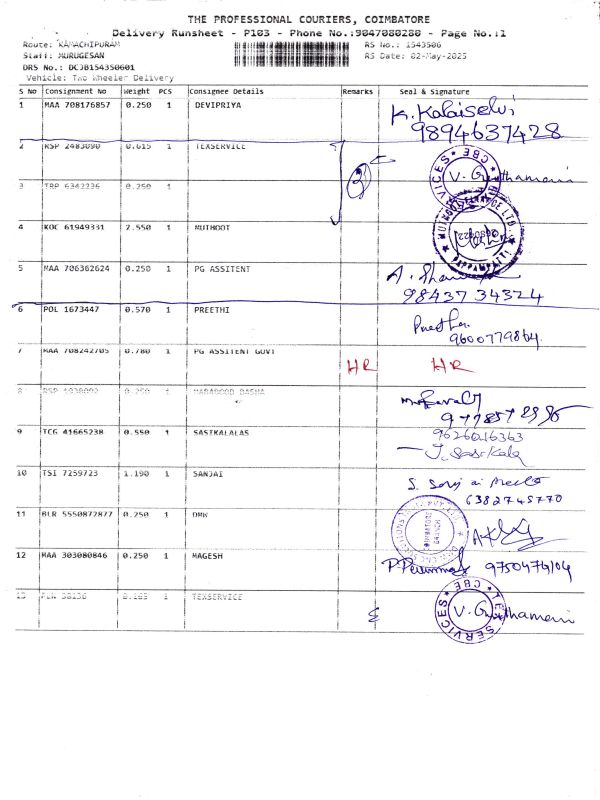 THE PROFESSIONAL COURIERS, COIMBATORE
Delivery Runsheet - P103 - Phone No.:9047080280 - Page No.:1
Route: RAMACHIPURAM RS No.: 1543506
Staff: MURUGESAN RS Date: 02-May-2025
DRS No.: DCJB154350601
Vehicle: Two Wheeler Delivery
S No Consignment No Weight PCS Consignee Details Remarks Seal & Signature
1 MAA 708176857 0.250 1 DEVIPRIYA K. Kalaiselvi
9894637428
2 RSP 2483090 0.615 1 TEXSERVICE V. Geethamani
3 TRP 6342236 0.250 1
4 KOC 61949331 2.550 1 MUTHOOT
5 MAA 706362624 0.250 1 PG ASSITENT
98437 34324
6 POL 1673447 0.570 1 PREETHI Preethi
9600779864
7 MAA 708242705 0.780 1 PG ASSITENT GOVT HR HR
8 RSP 1838092 0.250 1 MARABOOD BASHA
9 TCG 41665238 0.550 1 SASIKALALAS 9626016363
J. Sasikala
10 TSI 7259723 1.190 1 SANJAI
6382745770
11 BLR 5550872877 0.250 1 DMW
COIMBATORE BRANCH
12 MAA 303080846 0.250 1 MAGESH P. Perummal 9750474104
13 PLN 38136 0.165 1 TEXSERVICE V. Geethamani
TEX SERVICES * CBE *